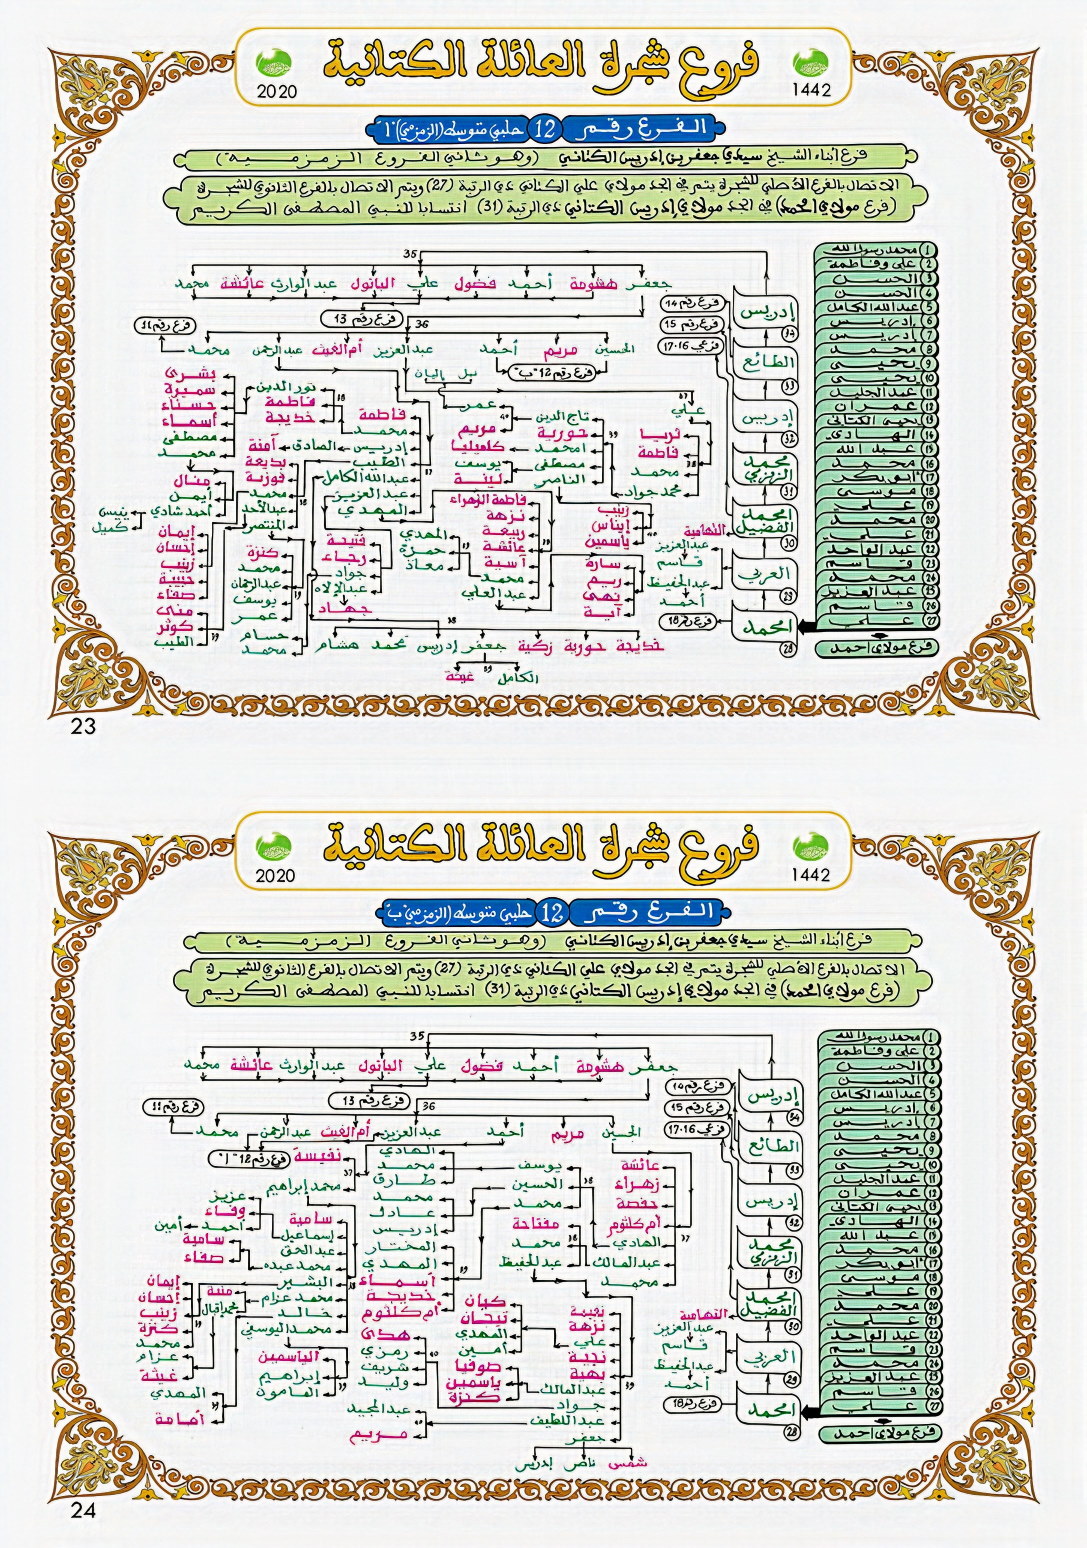 فروع شجرة العائلة الكتانية
2020
1442
الفرع رقم 12 حلبي متوسط (الزمزمي) "أ"
فرع أبناء الشيخ سيدي جعفر بن إدريس الكتاني (وهو ثاني الفروع الزمزمية)
الاتصال بالفرع الأصلي للشجرة يتم في الجد مولاي علي الكتاني ذي الرتبة (27) ويتم الاتصال بالفرع الثانوي للشجرة
(فرع مولاي امحمد) في الجد مولاي إدريس الكتاني ذي الرتبة (31) انتسابا للنبي المصطفى الكريم
1 محمد رسول الله
2 علي وفاطمة
3 الحسن
4 الحسن
5 عبد الله الكامل
6 إدريس
7 إدريس
8 محمد
9 يحيى
10 يحيى
11 عبد الجليل
12 عمران
13 يحيى الكتاني
14 الهادي
15 عبد الله
16 محمد
17 أبو بكر
18 موسى
19 علي
20 محمد
21 علي
22 عبد الواحد
23 قاسم
24 محمد
25 عبد العزيز
26 قاسم
27 علي
فرع مولاي احمد
امحمد 28
العربي 29
امحمد الفضيل 30
محمد الزمزمي 31
إدريس 32
الطائع 33
إدريس 34
فرع رقم 14
فرع رقم 15
فرعي 16-17
فرع رقم 18
التهامية
عبد العزيز
قاسم
عبد الحفيظ
أحمد
35
جعفر هشومة أحمد فضول علي البانول عبد الوارث عائشة محمد
فرع رقم 13
36
فرع رقم 11
الحسين مريم أحمد عبد العزيز أم الغيث عبد الرحمن محمد
فرع رقم 12 "ب"
نبيل إليان
علي
ثريا
فاطمة
محمد
محمد جواد
عمر
مريم
كاميليا
تاج الدين
حورية
امحمد
مصطفى
الناصر
يوسف
لينة
زينب
إيناس
ياسمين
فاطمة الزهراء
نزهة
ربيعة
عائشة
آسية
محمد
عبد العلي
سارة
ريم
نهى
آية
فاطمة
محمد
إدريس
الطيب
عبد الله الكامل
عبد العزيز
المهدي
المهدي
حمزة
معاذ
نور الدين
فاطمة
خديجة
الصادق
آمنة
بديعة
فوزية
محمد
عبد الأحد
المنتصر
بشرى
سميرة
حسناء
أسماء
مصطفى
محمد
منال
أيمن
أحمد شادي
كميل
إيمان
إحسان
زينب
حبيبة
صفاء
منى
كوثر
الطيب
كنزة
محمد
عبد الرحمان
يوسف
عمر
حسام
محمد
فتيحة
رجاء
جواد
عبد الإلاه
جهاد
38
خديجة حورية زكية جعفر إدريس محمد هشام
الكامل
23
فروع شجرة العائلة الكتانية
2020
1442
الفرع رقم 12 حلبي متوسط (الزمزمي) ب
فرع أبناء الشيخ سيدي جعفر بن إدريس الكتاني (وهو ثاني الفروع الزمزمية)
الاتصال بالفرع الأصلي للشجرة يتم في الجد مولاي علي الكتاني ذي الرتبة (27) ويتم الاتصال بالفرع الثانوي للشجرة
(فرع مولاي امحمد) في الجد مولاي إدريس الكتاني ذي الرتبة (31) انتسابا للنبي المصطفى الكريم
1 محمد رسول الله
2 علي وفاطمة
3 الحسن
4 الحسن
5 عبد الله الكامل
6 إدريس
7 إدريس
8 محمد
9 يحيى
10 يحيى
11 عبد الجليل
12 عمران
13 يحيى الكتاني
14 الهادي
15 عبد الله
16 محمد
17 أبو بكر
18 موسى
19 علي
20 محمد
21 علي
22 عبد الواحد
23 قاسم
24 محمد
25 عبد العزيز
26 قاسم
27 علي
فرع مولاي احمد
امحمد 28
العربي 29
امحمد الفضيل 30
محمد الزمزمي 31
إدريس 32
الطائع 33
إدريس 34
فرع رقم 14
فرع رقم 15
فرعي 16-17
فرع رقم 18
التهامية
عبد العزيز
قاسم
عبد الحفيظ
أحمد
35
جعفر هشومة أحمد فضول علي البانول عبد الوارث عائشة محمد
فرع رقم 13
36
فرع رقم 11
الحسين مريم أحمد عبد العزيز أم الغيث عبد الرحمن محمد
فرع رقم 12 "أ"
عائشة
زهراء
حفصة
أم كلثوم
الهادي
عبد المالك
محمد
يوسف
الحسين
محمد
مفتاحة
محمد
عبد الحفيظ
الهادي
محمد
طارق
محمد
عادل
إدريس
المختار
المهدي
أسماء
خديجة
أم كلثوم
نفيسة
محمد إبراهيم
سامية
إسماعيل
عبد الحق
محمد عبده
البشير
محمد عزام
خالد
محمد اليوسفي
عزيز
وفاء
أحمد
أمين
سامية
صفاء
منية
محمد إقبال
إيمان
إحسان
زينب
كنزة
محمد
عزام
غيثة
المهدي
أمامة
الياسمين
إبراهيم
المامون
نعيمة
نزهة
علي
نجية
بهية
عبد المالك
جواد
عبد اللطيف
جعفر
كيان
تيجان
المهدي
أمين
صوفيا
ياسمين
كنزة
هدى
رمزي
شريف
وليد
عبد المجيد
مريم
شمس ناصر إدريس
24